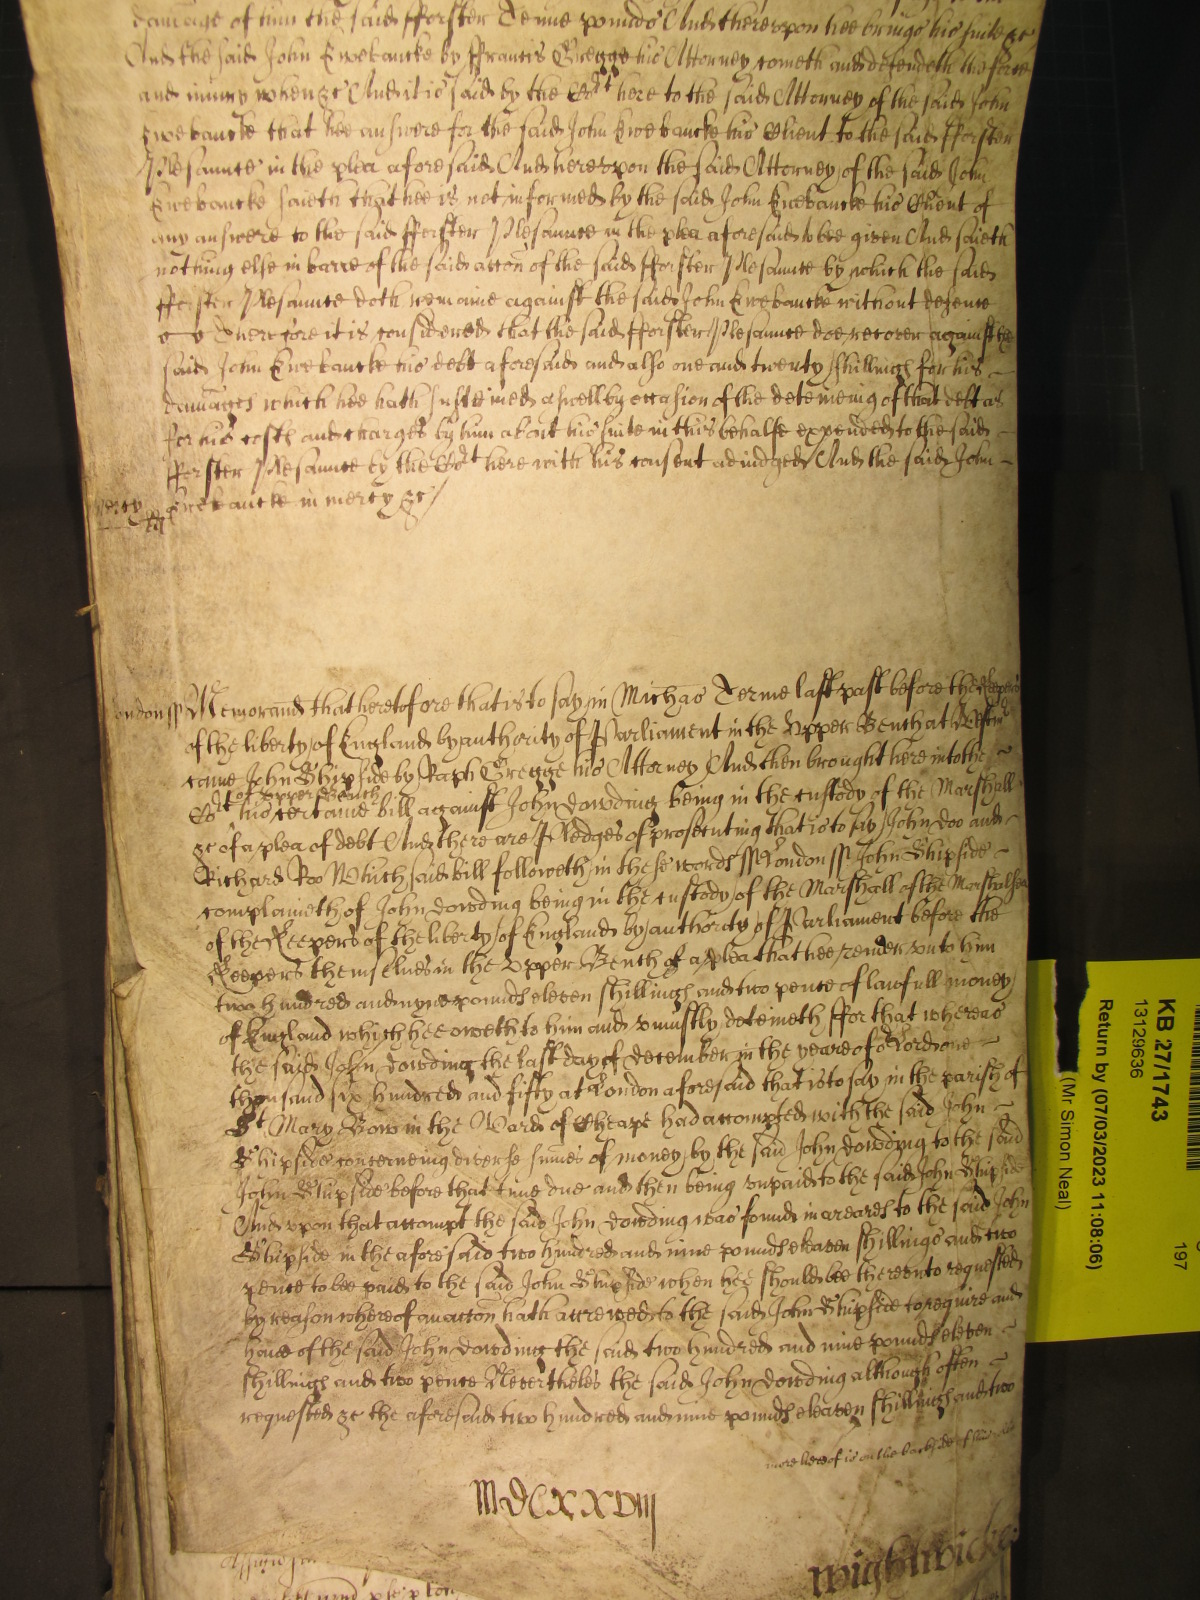 damage of him the said fforster Tenne pounds And thereupon hee brings his suite &c
And the said John Ewebancke by ffrancis Gregge his Attorney cometh and defendeth the force
and iniury when &c And it is said by the Cort here to the said Attorney of the said John
Ewebancke that hee answere for the said John Ewebancke his Client to the said fforster
Plesaunce in the plea aforesaid And hereupon the said Attorney of the said John
Ewebancke saieth that hee is not informed by the said John Ewebancke his Client of
any answere to the said fforster Plesaunce in the plea aforesaid to bee given And saieth
nothing else in barre of the said accon of the said fforster Plesaunce by which the said
fforster Plesaunce doth remaine against the said John Ewebancke without defence
Therefore it is considered that the said fforster Plesaunce doe recover against the
said John Ewebancke his debt aforesaid and also one and twenty shillings for his
damages which hee hath susteined aswell by occasion of the deteineing of that debt as
for his costs and charges by him about his suite in this behalfe expended to the said
fforster Plesaunce by the Cort here with his consent adiudged And the said John
mercy Ewebancke in mercy &c/
London ss Memorand that heretofore that is to say in Michas Terme last past before the Keepers
of the liberty of England by authority of Parliament in the Upper Bench at Westmr
came John Shipside by Raph Gregge his Attorney And then brought here into the
Cort of upper Bench his certaine bill against John Dowding being in the custody of the Marshall
&c of a plea of debt And there are Pledges of prosecuting that is to say John Doo and
Richard Roo Which said bill followeth in these words ss London ss John Shipside
complaineth of John Dowding being in the custody of the Marshall of the Marshalsea
of the Keepers of the liberty of England by authority of Parliament before the
Keepers themselves in the Upper Bench of a plea that hee render unto him
two hundred and nyne pounds eleven shillings and two pence of lawfull money
of England which hee oweth to him and uniustly deteineth ffor that whereas
the said John Dowding the last day of December in the yeare of or Lord one
thousand six hundred and fifty at London aforesaid that is to say in the parish of
St Mary Bow in the Ward of Cheape had accompted with the said John
Shipside concerneing diverse sumes of money by the said John Dowding to the said
John Shipside before that time due and then being unpaid to the said John Shipside
And upon that accompt the said John Dowding was found in arreard to the said John
Shipside in the aforesaid two hundred and nine pounds eleaven shillings and two
pence to bee paid to the said John Shipside when hee should bee thereunto requested
by reason whereof an accon hath accrewed to the said John Shipside to require and
have of the said John Dowding the said two hundred and nine pounds eleven
shillings and two pence Neverthelés the said John Dowding although often
requested &c the aforesaid two hundred and nine pounds eleaven shillings and two
more hereof is on the backside of this
MDCXXVIII
Wightwicke
KB 27/1743
13129636
Return by (07/03/2023 11:08:06)
(Mr Simon Neal)
197